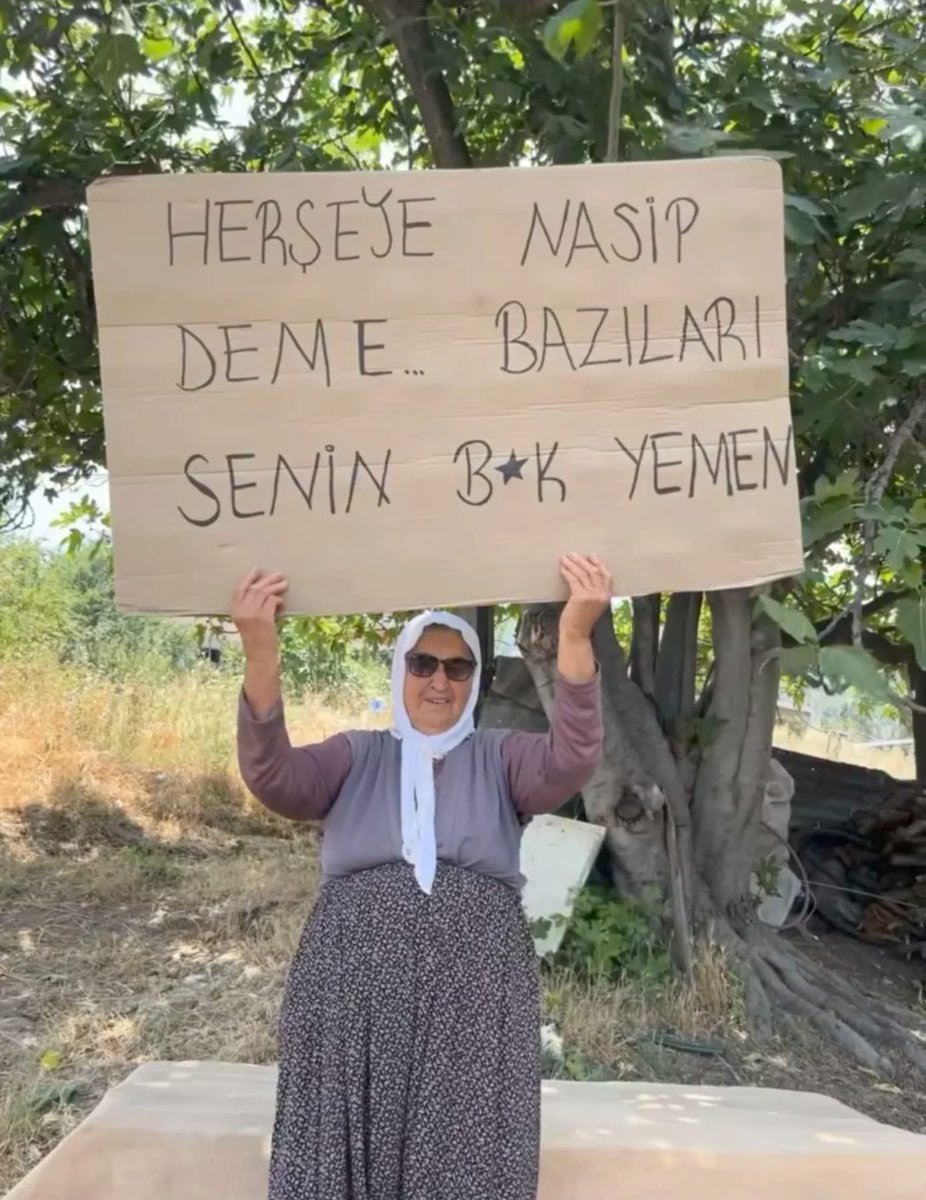 HERŞEYE NASİP
DEME... BAZILARI
SENİN B★K YEMEN